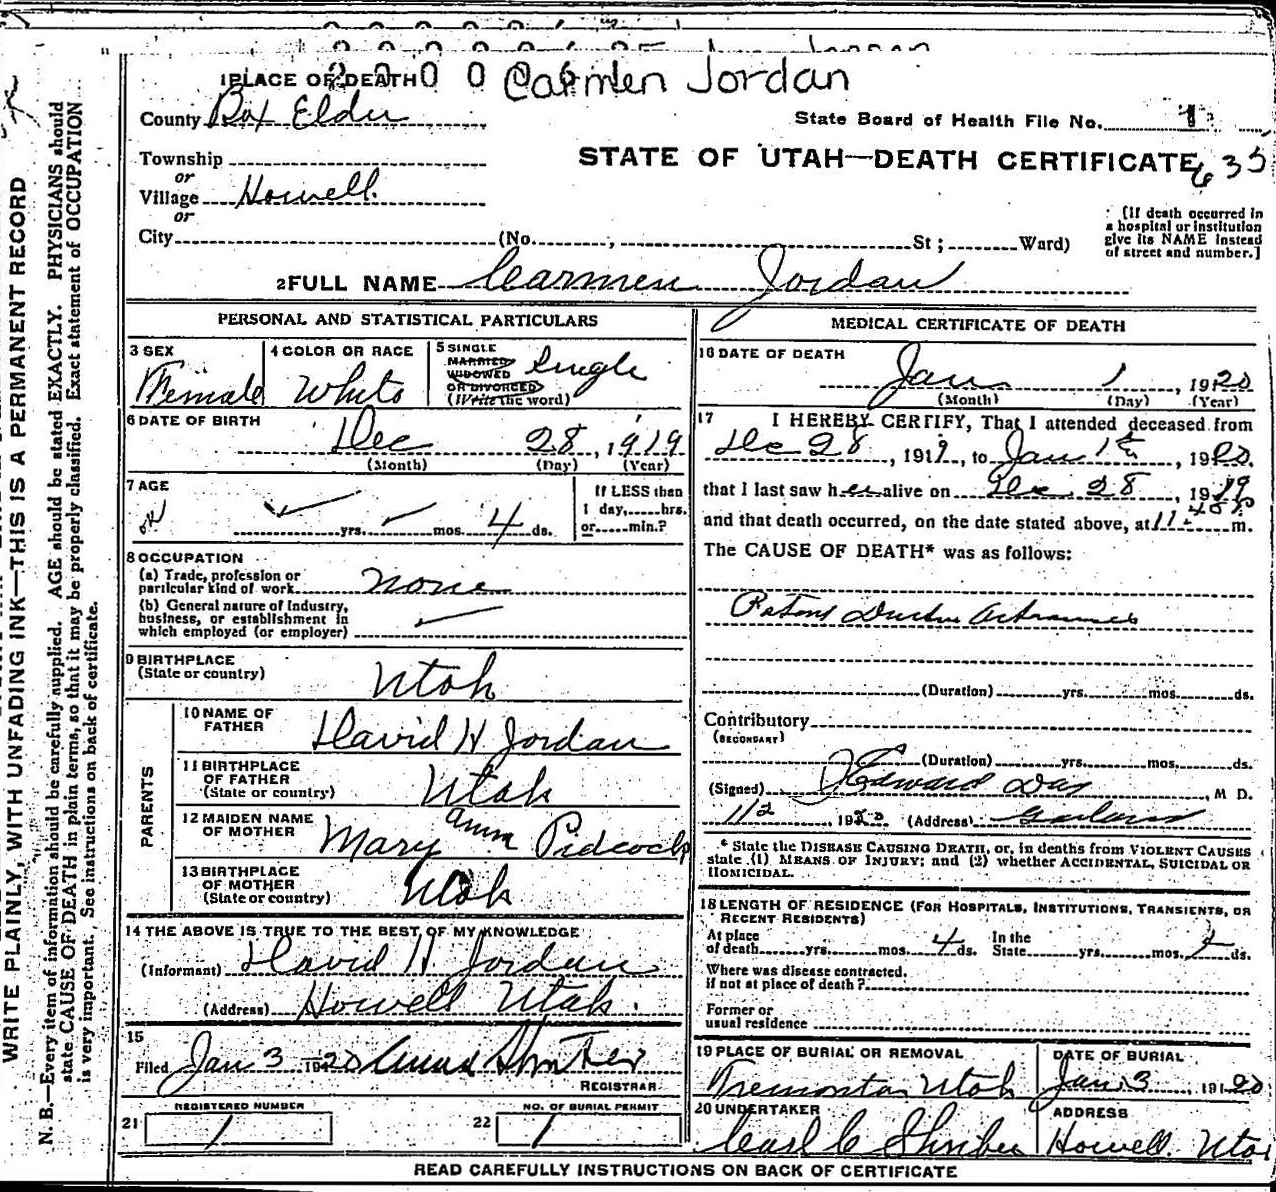 Carmen Jordan
1 PLACE OF DEATH
County Box Elder
State Board of Health File No. 1
Township
STATE OF UTAH—DEATH CERTIFICATE
635
or
Village Howell
or
City (No. , St ; Ward)
[If death occurred in
a hospital or institution
give its NAME instead
of street and number.]
2 FULL NAME Carmen Jordan
PERSONAL AND STATISTICAL PARTICULARS
3 SEX
Female
4 COLOR OR RACE
White
5 SINGLE
MARRIED
WIDOWED
OR DIVORCED
(Write the word)
Single
6 DATE OF BIRTH
Dec 28, 1919
(Month) (Day) (Year)
7 AGE
yrs. mos. 4 ds.
If LESS than
1 day, hrs.
or min.?
8 OCCUPATION
(a) Trade, profession or
particular kind of work none
(b) General nature of Industry,
business, or establishment in
which employed (or employer)
9 BIRTHPLACE
(State or country)
Utah
PARENTS
10 NAME OF
FATHER
David H Jordan
11 BIRTHPLACE
OF FATHER
(State or country)
Utah
12 MAIDEN NAME
OF MOTHER
Mary Ann Pidcock
13 BIRTHPLACE
OF MOTHER
(State or country)
Utah
14 THE ABOVE IS TRUE TO THE BEST OF MY KNOWLEDGE
(Informant) David H Jordan
(Address) Howell Utah.
15
Filed Jan 3 1920
REGISTRAR
21
REGISTERED NUMBER
1
22
NO. OF BURIAL PERMIT
1
MEDICAL CERTIFICATE OF DEATH
16 DATE OF DEATH
Jan 1, 1920
(Month) (Day) (Year)
17 I HEREBY CERTIFY, That I attended deceased from
Dec 28, 1919, to Jan 1st, 1920.
that I last saw her alive on Dec 28, 1919
and that death occurred, on the date stated above, at 11 45 p m.
The CAUSE OF DEATH* was as follows:
(Duration) yrs. mos. ds.
Contributory
(SECONDARY)
(Duration) yrs. mos. ds.
(Signed) Edward M D.
1/2, 1920 (Address) Garland
* State the DISEASE CAUSING DEATH, or, in deaths from VIOLENT CAUSES
state (1) MEANS OF INJURY; and (2) whether ACCIDENTAL, SUICIDAL OR
HOMICIDAL.
18 LENGTH OF RESIDENCE (FOR HOSPITALS, INSTITUTIONS, TRANSIENTS, OR
RECENT RESIDENTS)
At place
of death yrs. mos. 4 ds.
In the
State yrs. mos. ds.
Where was disease contracted.
if not at place of death ?
Former or
usual residence
19 PLACE OF BURIAL OR REMOVAL
Tremonton Utah
DATE OF BURIAL
Jan 3, 1920
20 UNDERTAKER
ADDRESS
Howell Utah
READ CAREFULLY INSTRUCTIONS ON BACK OF CERTIFICATE
WRITE PLAINLY, WITH UNFADING INK—THIS IS A PERMANENT RECORD
N. B.—Every item of information should be carefully supplied. AGE should be stated EXACTLY. PHYSICIANS should
state CAUSE OF DEATH in plain terms, so that it may be properly classified. Exact statement of OCCUPATION
is very important. See instructions on back of certificate.